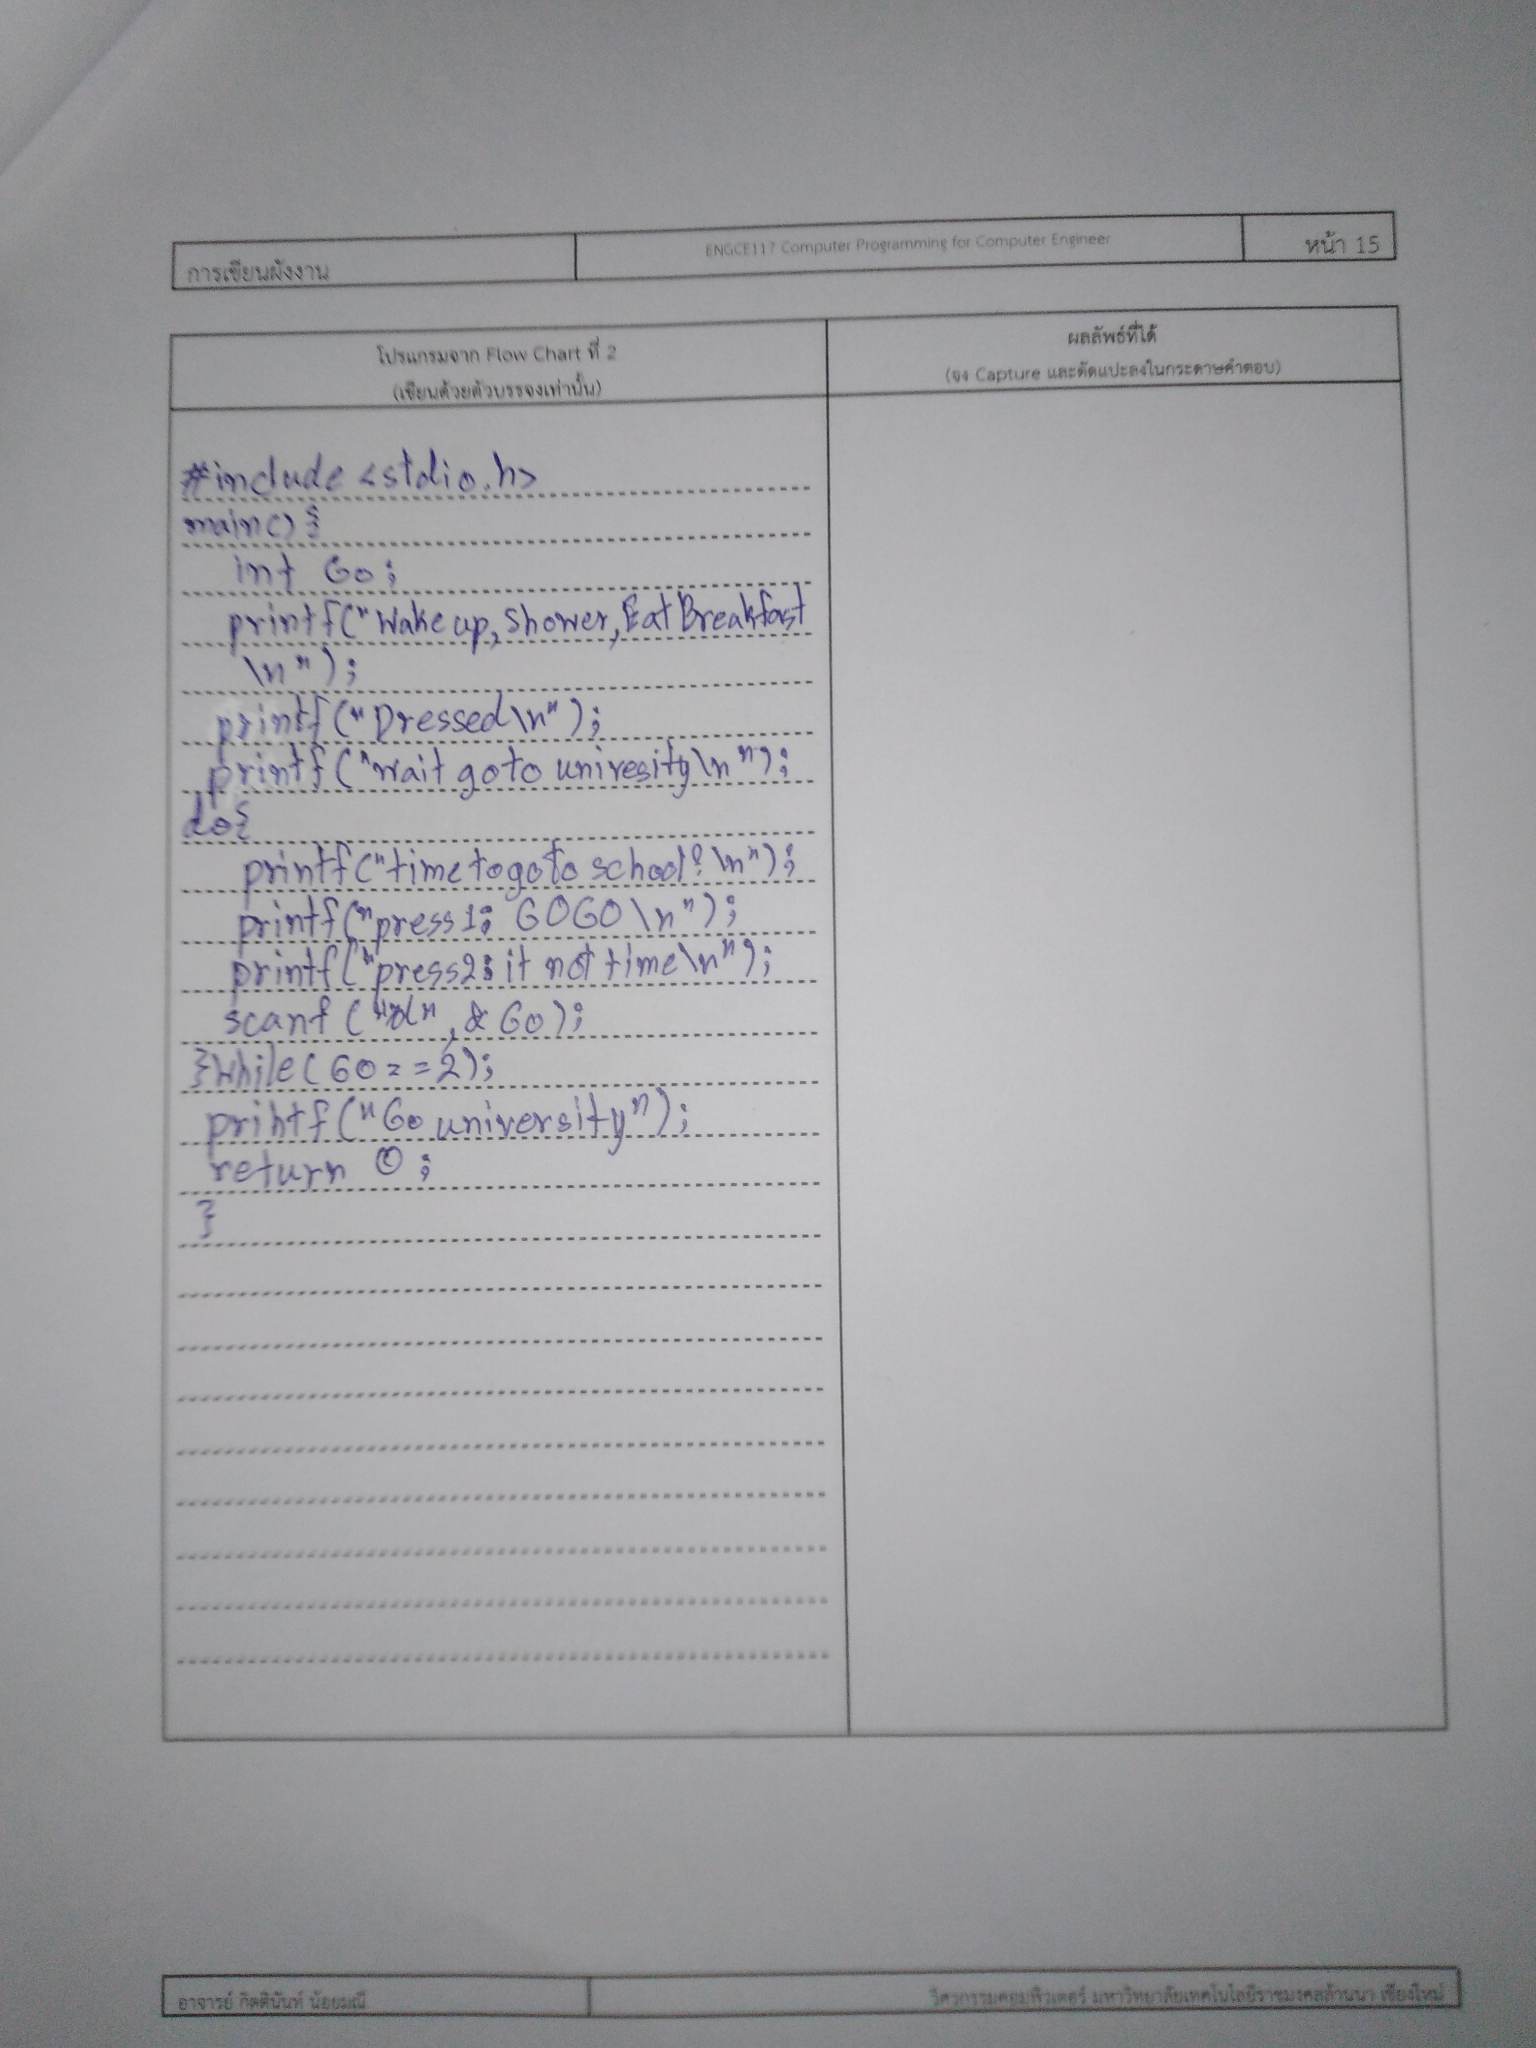 การเขียนผังงาน
ENGCE117 Computer Programming for Computer Engineer
หน้า 15
โปรแกรมจาก Flow Chart ที่ 2
(เขียนด้วยตัวบรรจงเท่านั้น)
ผลลัพธ์ที่ได้
(จง Capture และตัดแปะลงในกระดาษคำตอบ)
#include <stdio.h>
main() {
int Go;
printf("Wake up, Shower, Eat Breakfast
\n");
printf("Dressed\n");
printf("Wait go to univesity\n");
do{
printf("time to go to school?\n");
printf("press 1; GOGO\n");
printf("press2: it not time\n");
scanf("%d", & Go);
}while(Go == 2);
printf("Go university");
return 0;
}
อาจารย์ กิตตินันท์ น้อยมณี
วิศวกรรมคอมพิวเตอร์ มหาวิทยาลัยเทคโนโลยีราชมงคลล้านนา เชียงใหม่